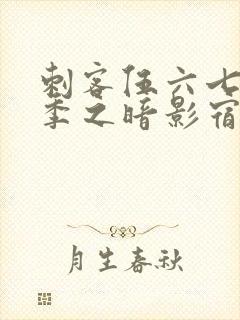 刺客伍六七
季之暗影宿
月生春秋